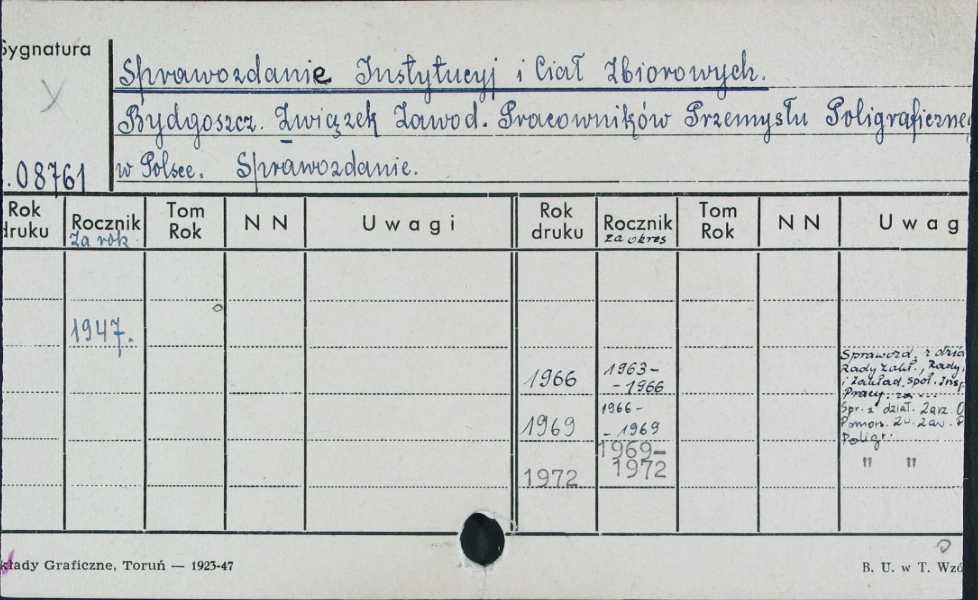 Sygnatura
Sprawozdanie Instytucyj i Ciał Zbiorowych.
Bydgoszcz. Związek Zawod. Pracowników Przemysłu Poligraficzne
w Polsce. Sprawozdanie.
.08761
Rok druku Rocznik za rok Tom Rok N N Uwagi Rok druku Rocznik za okres Tom Rok N N Uwag
1947.
1966 1963- -1966 Sprawozd. z dzia
Rady Zakł., Rady
i zakład. społ. Insp
Pracy. za ...
1969 1966- -1969 Spr. z dział. Zarz. O
Pomors. Zw. Zaw. P
Poligr.
1972 1969- 1972 " "
kłady Graficzne, Toruń — 1923-47
B. U. w T. Wzó